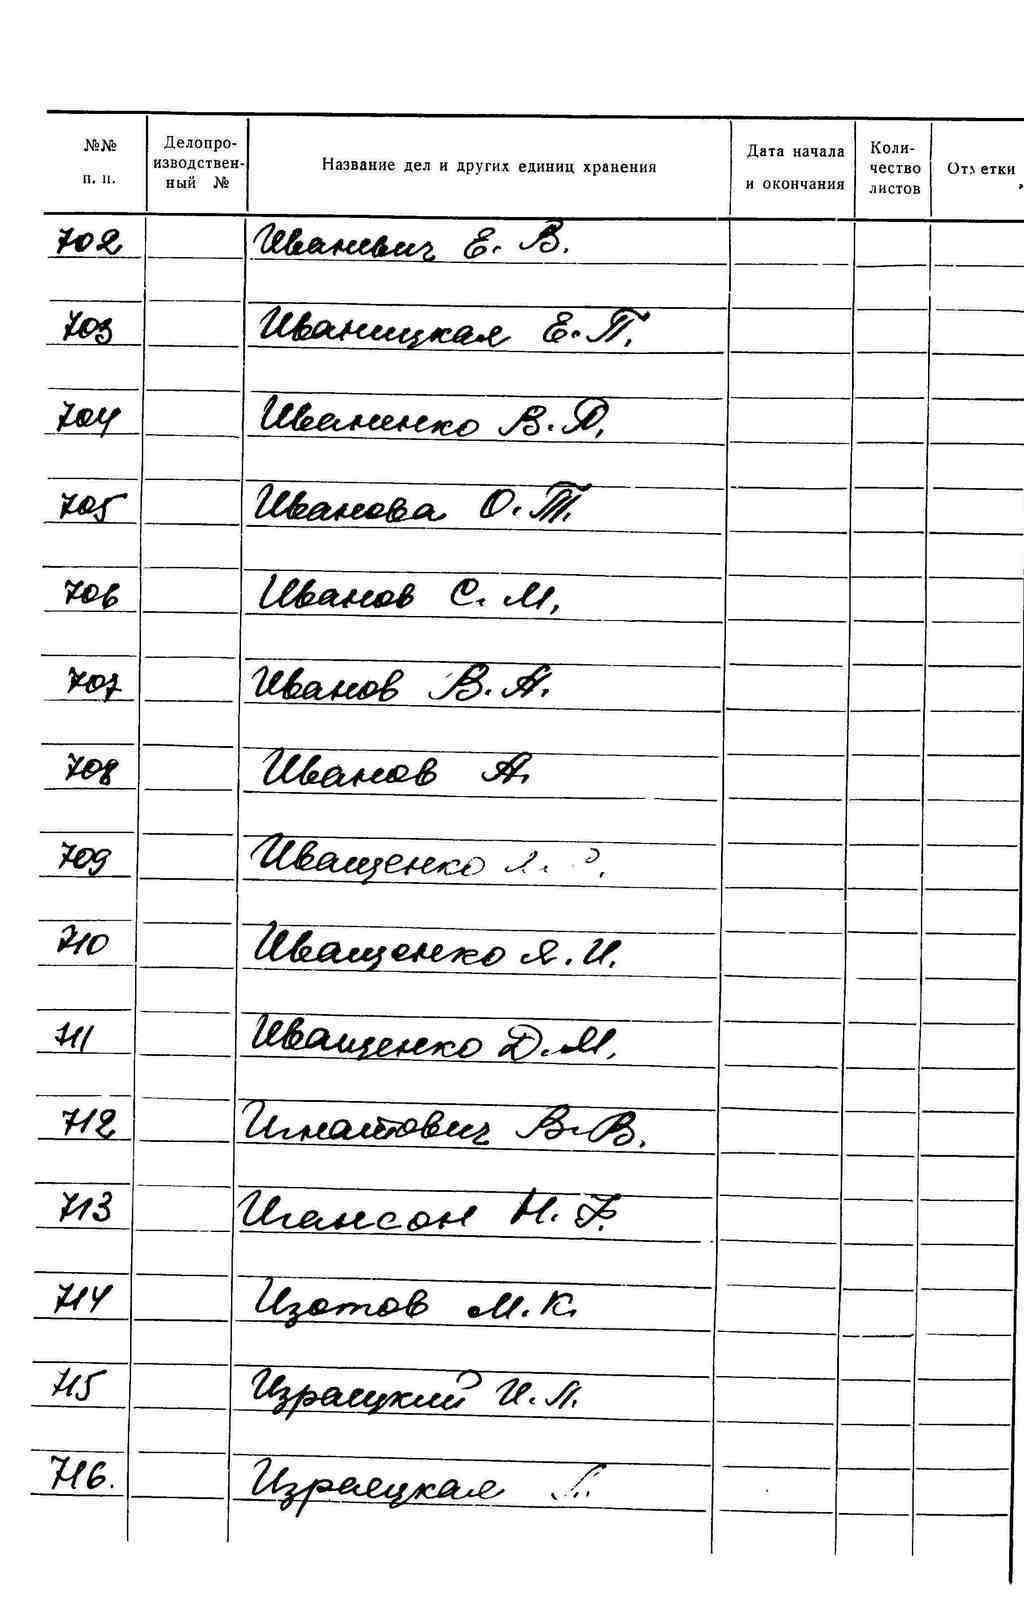 №№ п. п.
Делопро-
изводствен-
ный №
Название дел и других единиц хранения
Дата начала
и окончания
Коли-
чество
листов
702 Иваневич Е. В.
703 Иваницкая Е. П.
704 Иваненко В.
705 Иванова О. Т.
706 Иванов С. М.
707 Иванов В. А.
708 Иванов А.
709 Иващенко
710 Иващенко Я. И.
711 Иващенко Д. М.
712 Игнатович В. В.
713 Игансон Н. Г.
714 Изотов М. К.
715 Израецкий И. Л.
716. Израецкая